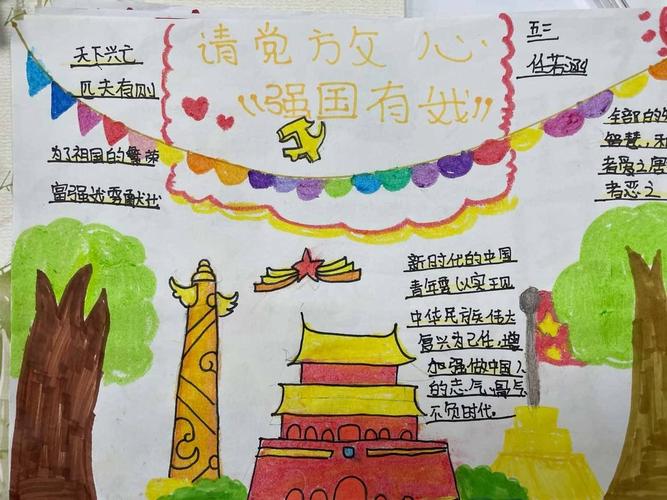 天下兴亡
匹夫有则
为了祖国的繁荣
富强我要献壮
请党放心
“强国有我”
五三
任若涵
全部的
智慧,和
者爱之,
者恶之
新时代的中国
青年要以实现
中华民族伟大
复兴为己任,增
加强做中国人
的志气,骨气
不负时代。